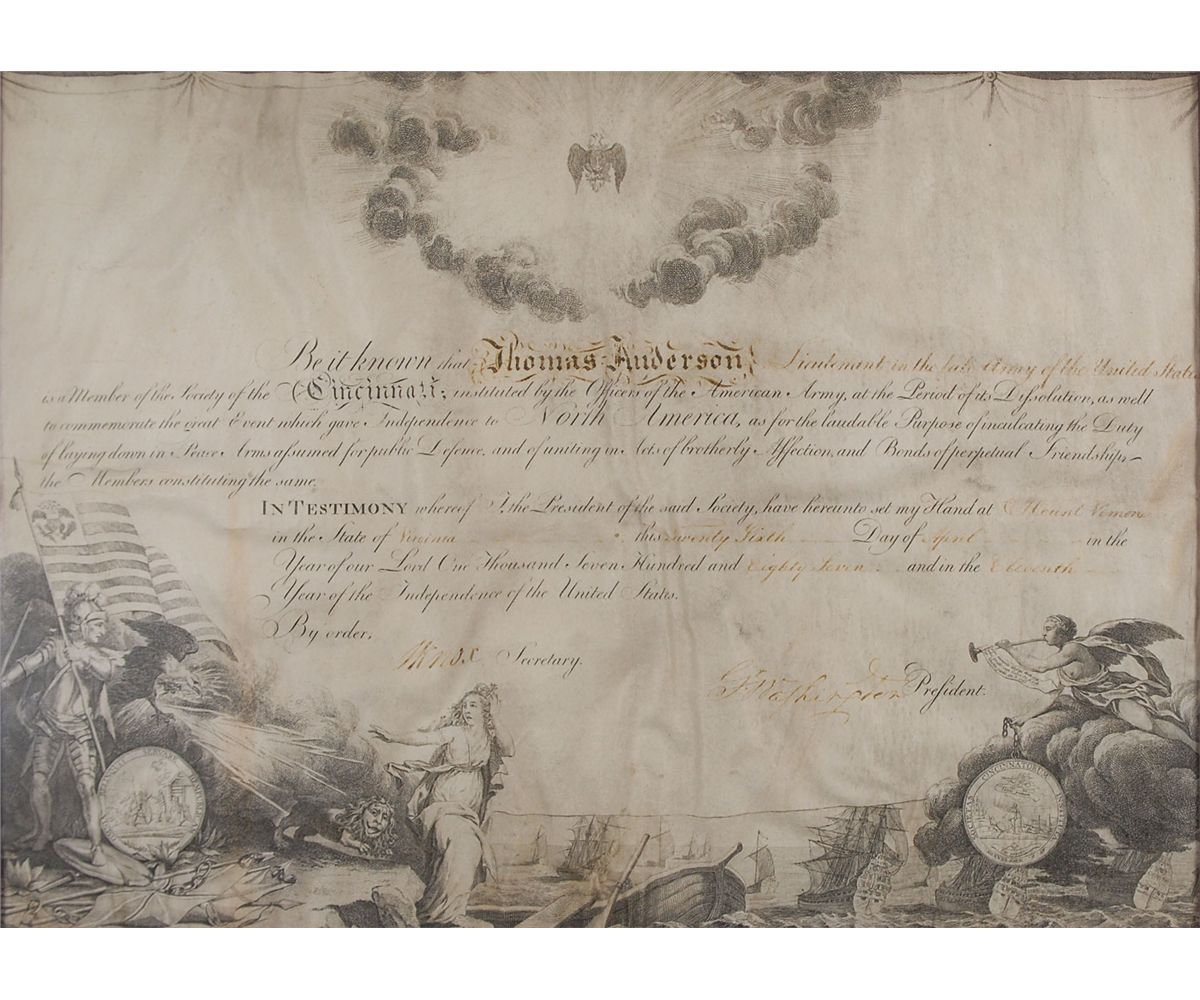 Be it known that Thomas Anderson, Lieutenant in the late Army of the United States
is a Member of the Society of the Cincinnati; instituted by the Officers of the American Army, at the Period of its Dissolution, as well
to commemorate the great Event which gave Independence to North America, as for the laudable Purpose of inculcating the Duty
of laying down in Peace Arms assumed for public Defence, and of uniting in Acts of brotherly Affection, and Bonds of perpetual Friendship
the Members constituting the same.
IN TESTIMONY whereof I, the President of the said Society, have hereunto set my Hand at Mount Vernon
in the State of Virginia this Twenty Sixth Day of April in the
Year of our Lord One Thousand Seven Hundred and Eighty Seven and in the Eleventh
Year of the Independence of the United States.
By order,
Knox Secretary.
G. Washington President.